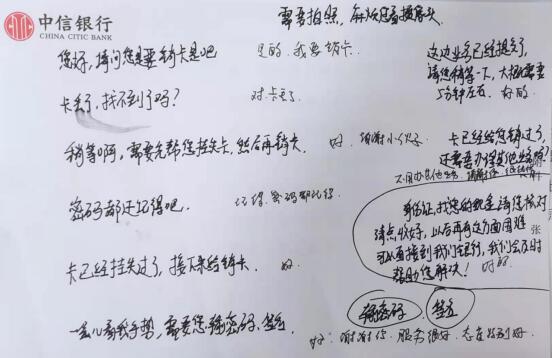 中信银行
CHINA CITIC BANK
需要拍照,麻烦您看摄像头
您好,请问您是要销卡是吧
是的.我要销卡
这边业务已经提交了
请您稍等一下,大概需要
5分钟左右. 好的
卡丢了,找不到了吗?
对.卡丢了
稍等啊,需要先帮您挂失卡,然后再销卡
好.谢谢小伙子
卡已经给您销过了,
还需要办理其他业务吗?
密码都还记得吧
记得,密码都记得
身份证,找您的现金请您核对
清点收好,以后再有这方面困难
可以直接到我们银行,我们会及时
帮助您解决! 好的
张
卡已经挂失过了,接下来给销卡
好
输密码. 签名
一会儿看我手势,需要您输密码、签名
好.谢谢你.服务很好,态度特别好